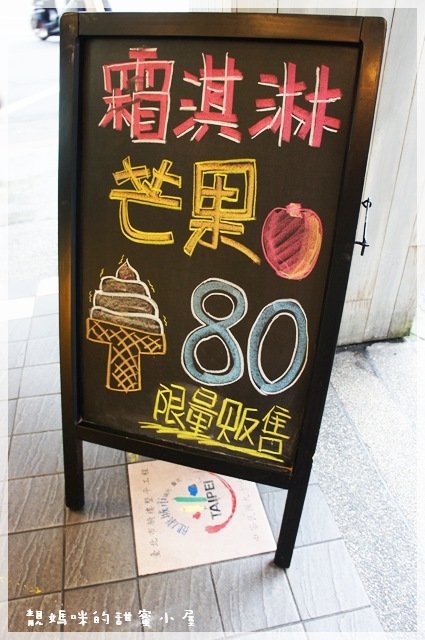 霜淇淋
芒果
80
限量販售
TAIPEI
靚媽咪的甜蜜小屋